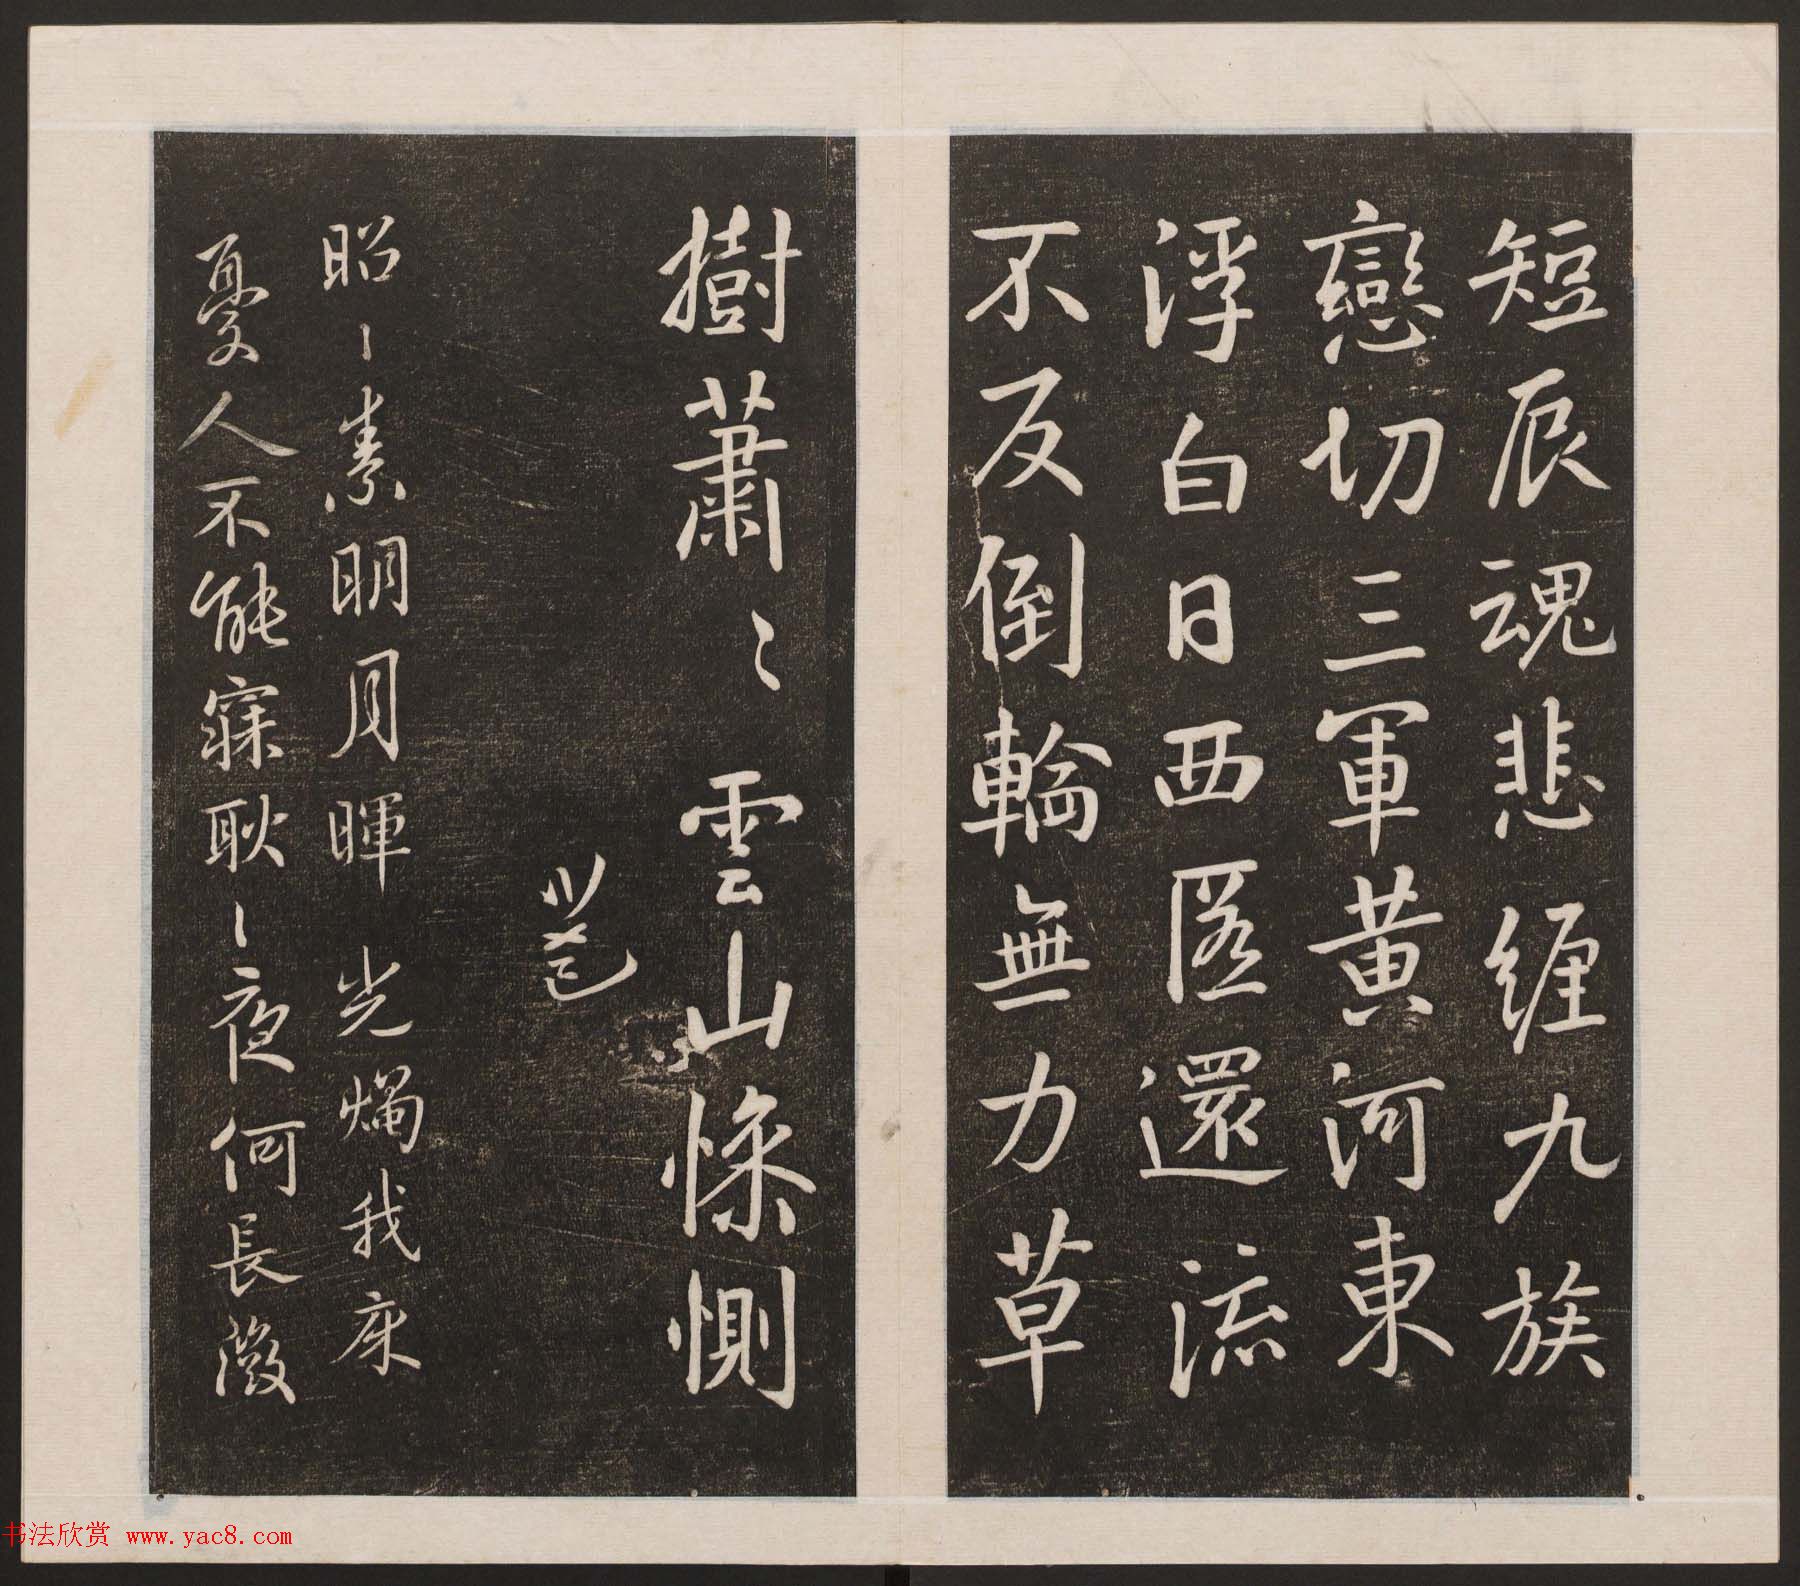 短辰魂悲纏九族
戀切三軍黃河東
浮白日西匿還流
不反倒輪無力草
樹蕭〻雲山慘惻
昭〻素明月暉光燭我床
憂人不能寐耿〻夜何長微
书法欣赏 www.yac8.com